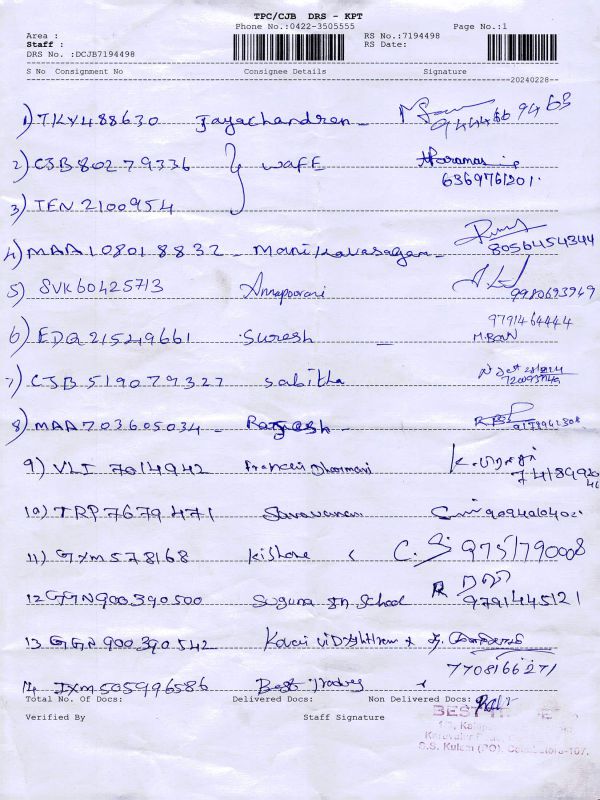 TPC/CJB DRS - KPT
Phone No.:0422-3505555 Page No.:1
Area : RS No.:7194498
Staff : RS Date:
DRS No. :DCJB7194498
S No Consignment No Consignee Details Signature
20240228
1) TKY488630 Jayachandren - 9444669463
2) CJB80279336 WAFE
6369761201.
3) TEN 2100954
4) MAA108018832 - Manikavasagan - 8056454344
5) SVK60425713 Annapoorani 9980693949
6) EDQ21549661 Suresh - 9791464444
7) CJB519079327 Sabitha
8) MAA703605034 - Ragesh -
9) VLI 7014942 Francis
10) TRP7679471 Saravanan
11) GYM578168 Kishore 9751790008
12 GGN900390500 Suguna School R 9791445121
13 GGN900390542 Kovai
7708166271
14 IXM505996586 Best Traders
Total No. Of Docs: Delivered Docs: Non Delivered Docs:
Verified By Staff Signature
BEST
S.S. Kulam (PO), Coimbatore-107.